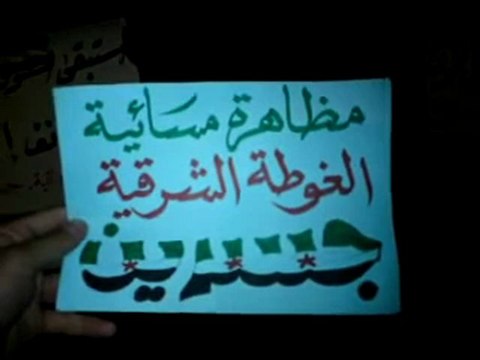 مظاهرة مسائية
الغوطة الشرقية
جسرين